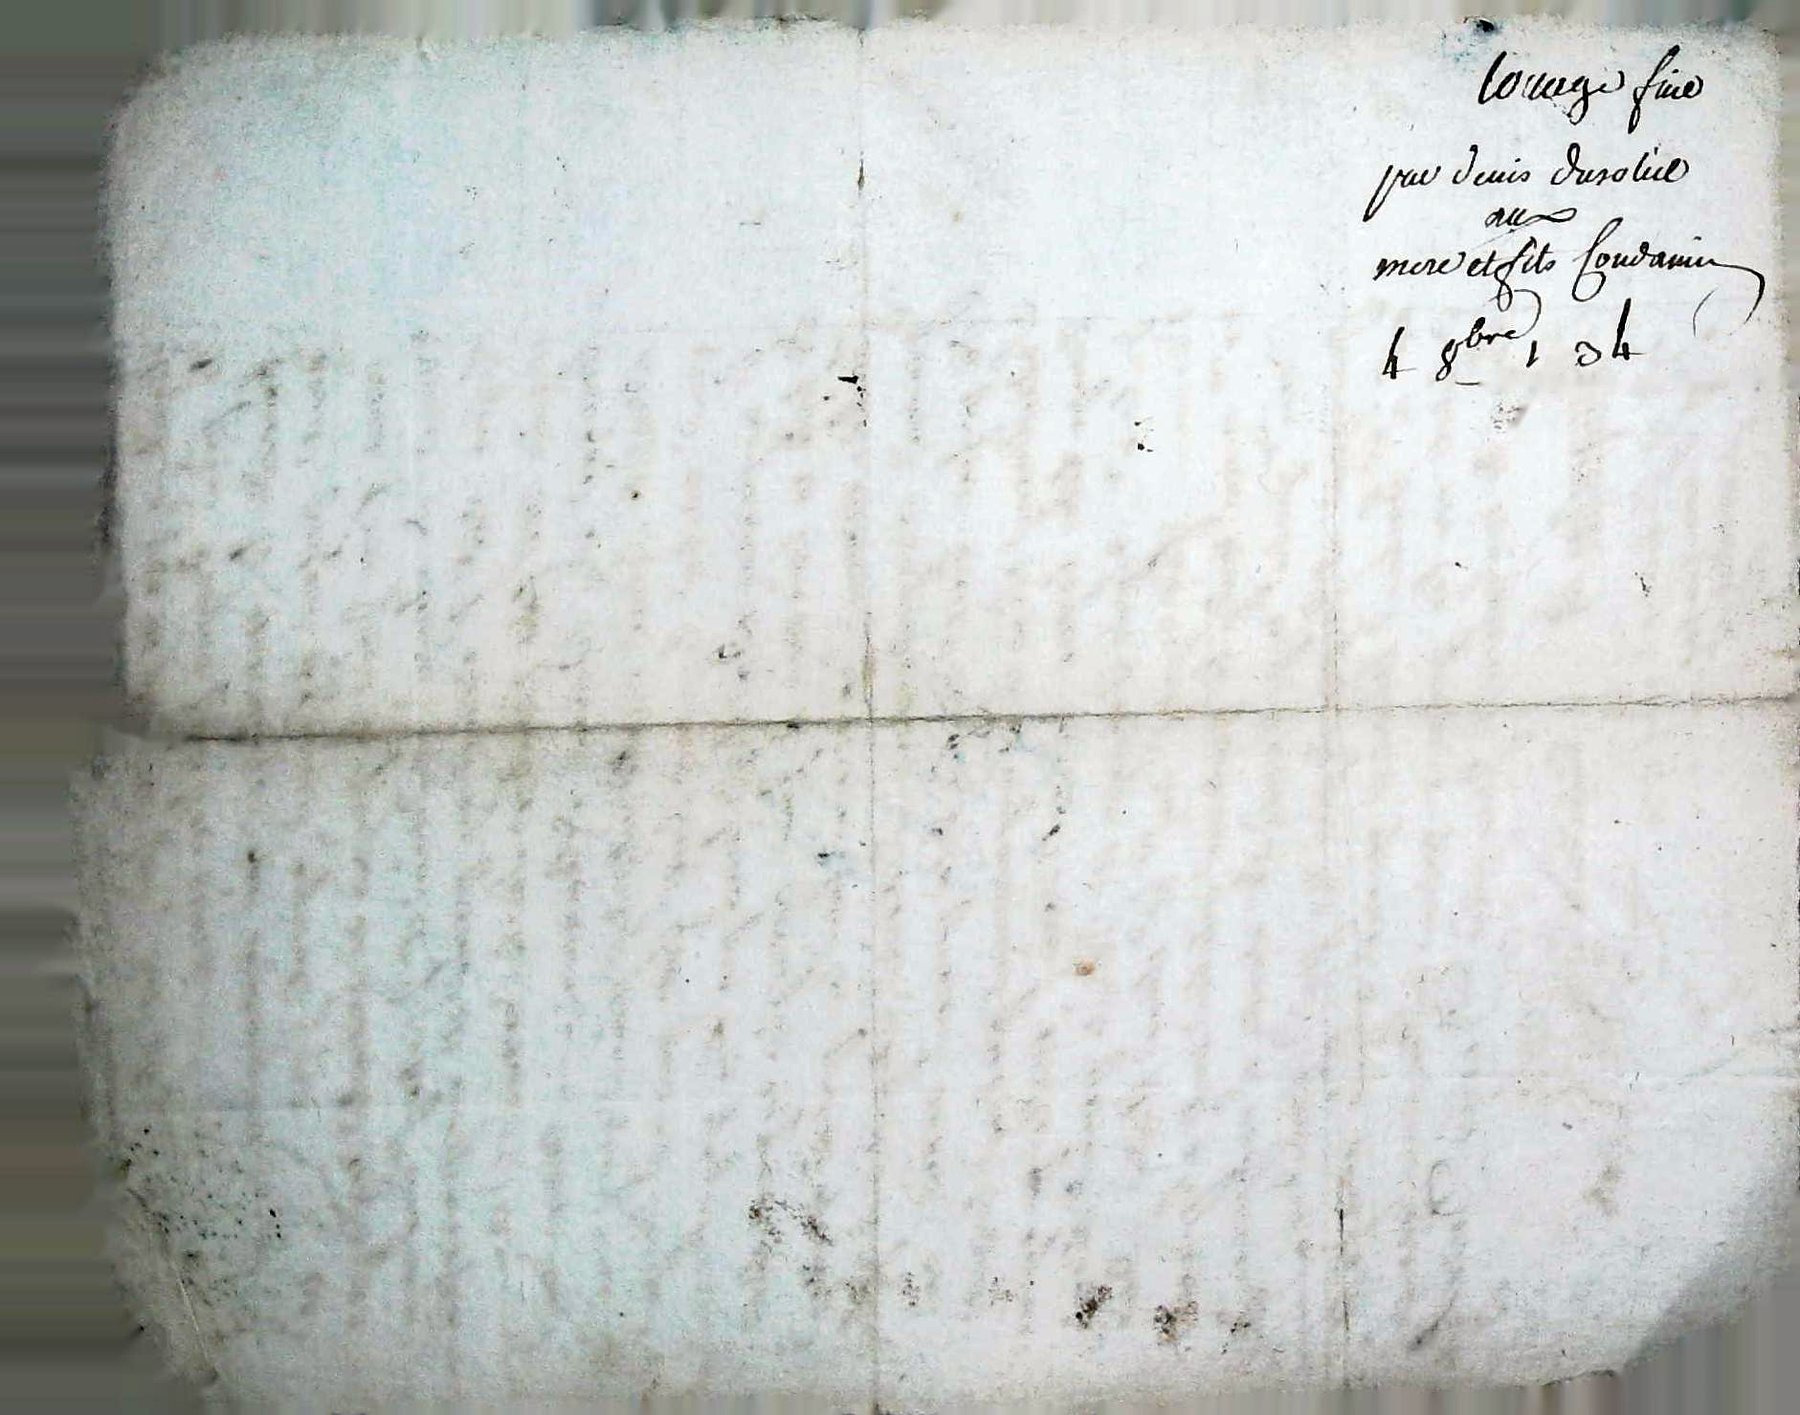 louage fine
par denis dusolie
aux
mere et fils Condamin
4 8bre 1 34